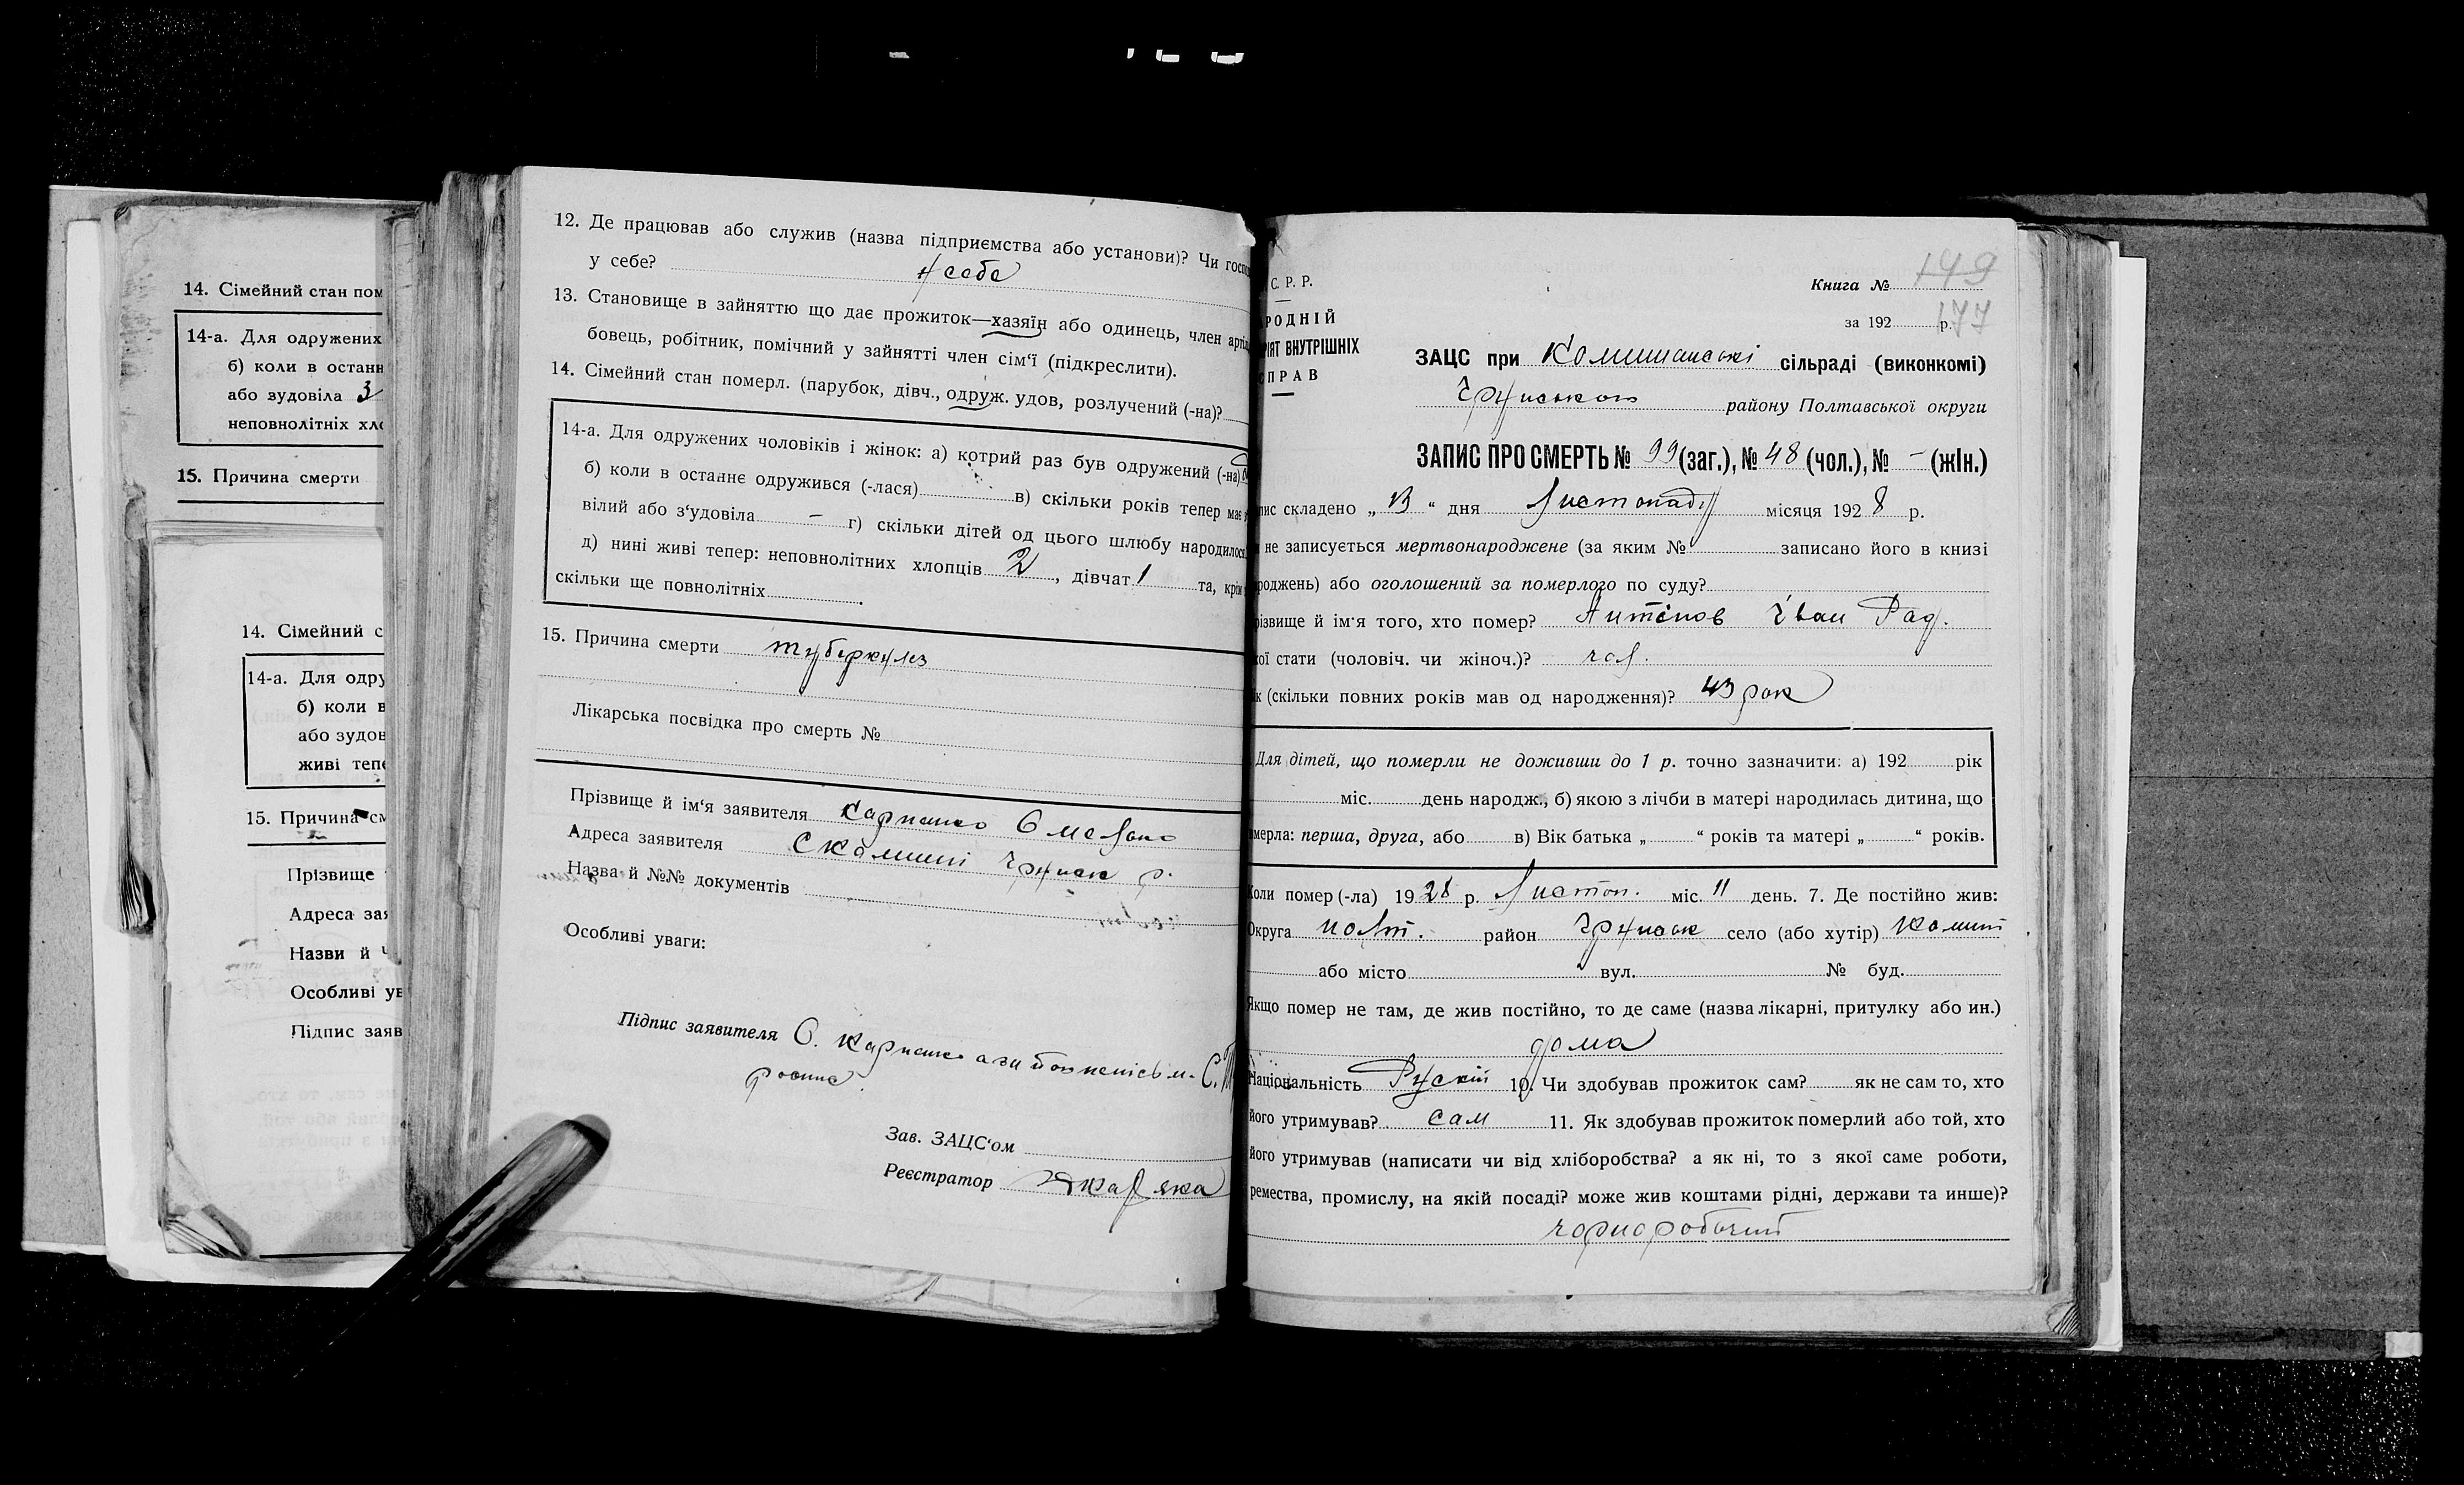 14. Сімейний стан пом
14-а. Для одружених
б) коли в останн
або зудовіла 3
неповнолітніх хло
15. Причина смерти
14. Сімейний с
14-а. Для одру
б) коли в
або зудов
живі тепе
15. Причина см
Прізвище
Адреса зая
Назви й
Особливі ув
Підпис заяв
12. Де працював або служив (назва підприємства або установи)? Чи госпо
у себе? у себе
13. Становище в зайняттю що дає прожиток—хазяїн або одинець, член артіл
бовець, робітник, помічний у зайнятті член сім'ї (підкреслити).
14. Сімейний стан померл. (парубок, дівч., одруж. удов, розлучений (-на)?
14-а. Для одружених чоловіків і жінок: а) котрий раз був одружений (-на)
б) коли в останнє одружився (-лася) в) скільки років тепер має
вілий або з'удовіла — г) скільки дітей од цього шлюбу народилось
д) нині живі тепер: неповнолітних хлопців 2, дівчат 1 та, крім
скільки ще повнолітніх
15. Причина смерти туберкулез
Лікарська посвідка про смерть №
Прізвище й ім'я заявителя
Адреса заявителя
Назва й №№ документів
Особливі уваги:
Підпис заявителя
Зав. ЗАЦС'ом
Реєстратор
149
Книга №
177
за 192 р.
С. Р. Р.
РОДНІЙ
РІЯТ ВНУТРІШНІХ
СПРАВ
ЗАЦС при Комишанські сільраді (виконкомі)
району Полтавської округи
ЗАПИС ПРО СМЕРТЬ № 99 (заг.), № 48 (чол.), № — (жін.)
пис складено „13“ дня Листопаду місяця 1928 р.
не записується мертвонароджене (за яким № записано його в книзі
роджень) або оголошений за померлого по суду?
різвище й ім'я того, хто помер? Антіпов Іван Рад.
кої стати (чоловіч. чи жіноч.)? чол.
к (скільки повних років мав од народження)? 43 рок
Для дітей, що померли не доживши до 1 р. точно зазначити: а) 192 рік
міс. день народж., б) якою з лічби в матері народилась дитина, що
мерла: перша, друга, або в) Вік батька „ “ років та матері „ “ років.
Коли помер (-ла) 1928 р. Листоп. міс. 11 день. 7. Де постійно жив:
Округа Полт. район село (або хутір) Комиші
або місто вул. № буд.
Якщо помер не там, де жив постійно, то де саме (назва лікарні, притулку або ин.)
дома
Національність Рускій 10. Чи здобував прожиток сам? як не сам то, хто
його утримував? сам 11. Як здобував прожиток померлий або той, хто
його утримував (написати чи від хліборобства? а як ні, то з якої саме роботи,
ремества, промислу, на якій посаді? може жив коштами рідні, держави та инше)?
чорноробочий